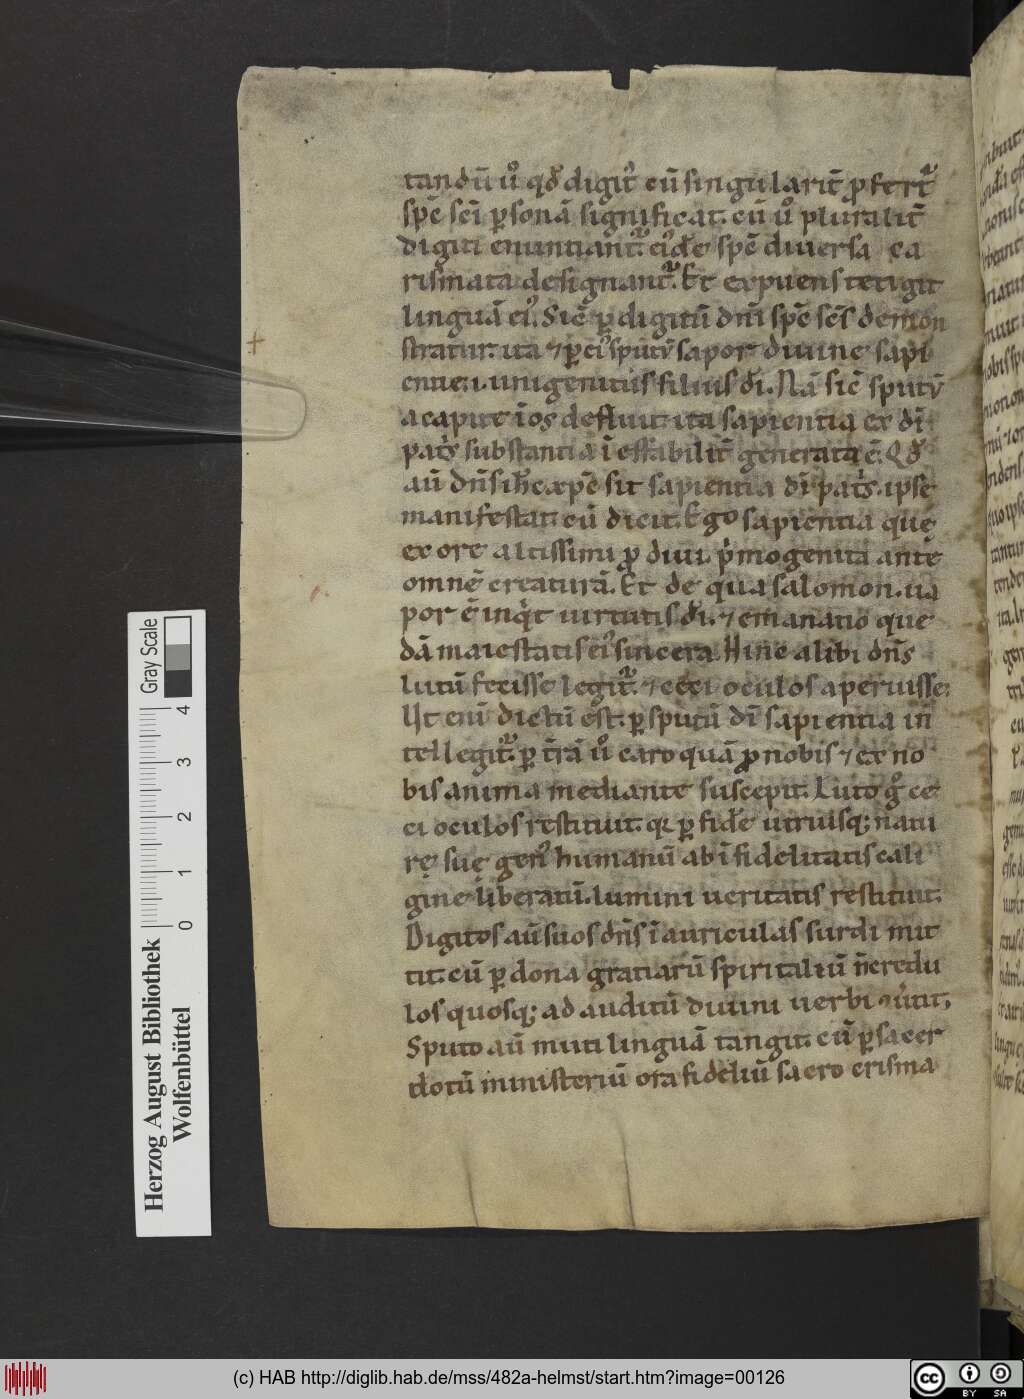 tandū ů qđ digit᷒ cū singularit̄ ꝓfert᷑
sp̄c sc̄i p̱sonā significat. cū ů pluralit̄
digiti enuntiant᷑. ei᷒dē sp̄c diuersa ca
rismata designant᷑. Et expuens tetigit
linguā ei᷒. Sic̄ p̱ digitū dn̄i sp̄c sc̄s demon
stratur. ita ⁊ p̱ ei᷒ sputū sapor diuine sapi
entie .i. unigenitus filius di̅. Nā sic̄ sputū
a capite ī os defluit. ita sapientia ex di̅
pat͛s substantia ī effabilit̄ generata ē. Qđ
aū dn̄s ih̄c xp̄c sit sapientia di̅ pat͛s. ipse
manifestat cū dicit. Ego sapientia quę
ex ore altissimi ꝓdiui. pͥmogenita ante
omnē creaturā. Et de qua salomon. ua
por ē inqͥt uirtutis di̅. ⁊ emanatio que
dā maiestatis ei᷒ sincera. Hinc alibi dn̄s
lutū fecisse legit᷑. ⁊ ceci oculos aperuisse.
Ut enī dictū est. p̱ sputū di̅ sapientia in
tellegit᷑. p̱ t̄rā ů caro quā ꝓ nobis ⁊ ex no
bis anima mediante suscepit. Luto gͦ ce
ci oculos restituit. qꝛ p̱ fidē utriusq; natu
rę suę gen᷒ humanū ab ī fidelitatis cali
gine liberatū. lumini ueritatis restituit.
Digitos aū suos dn̄s ī auriculas surdi mit
tit. cū p̱ dona gratiarū spiritaliū n̄ credu
los quosq; ad auditū diuini uerbi ⁊ůtit;
Sputo aū muti linguā tangit. cū p̱ sacer
dotū ministeriū ora fideliū sacro crisma
+
Gray Scale
0 1 2 3 4
Herzog August Bibliothek
Wolfenbüttel
(c) HAB http://diglib.hab.de/mss/482a-helmst/start.htm?image=00126
cc BY SA